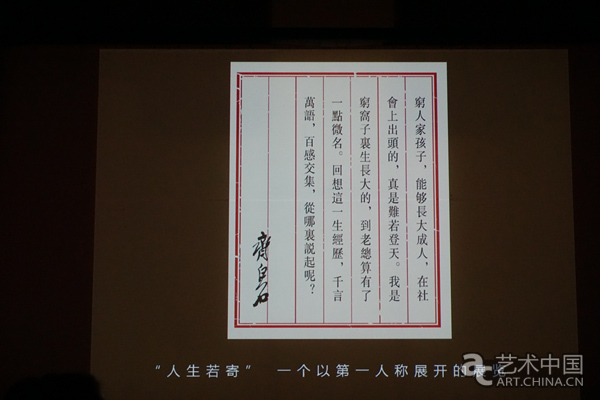 窮人家孩子，能够長大成人，在社
會上出頭的，真是難若登天。我是
窮窩子裏生長大的，到老總算有了
一點微名。回想這一生經歷，千言
萬語，百感交集，從哪裏説起呢？
齊白石
“人生若寄” 一个以第一人称展开的展览
艺术中国
ART.CHINA.CN